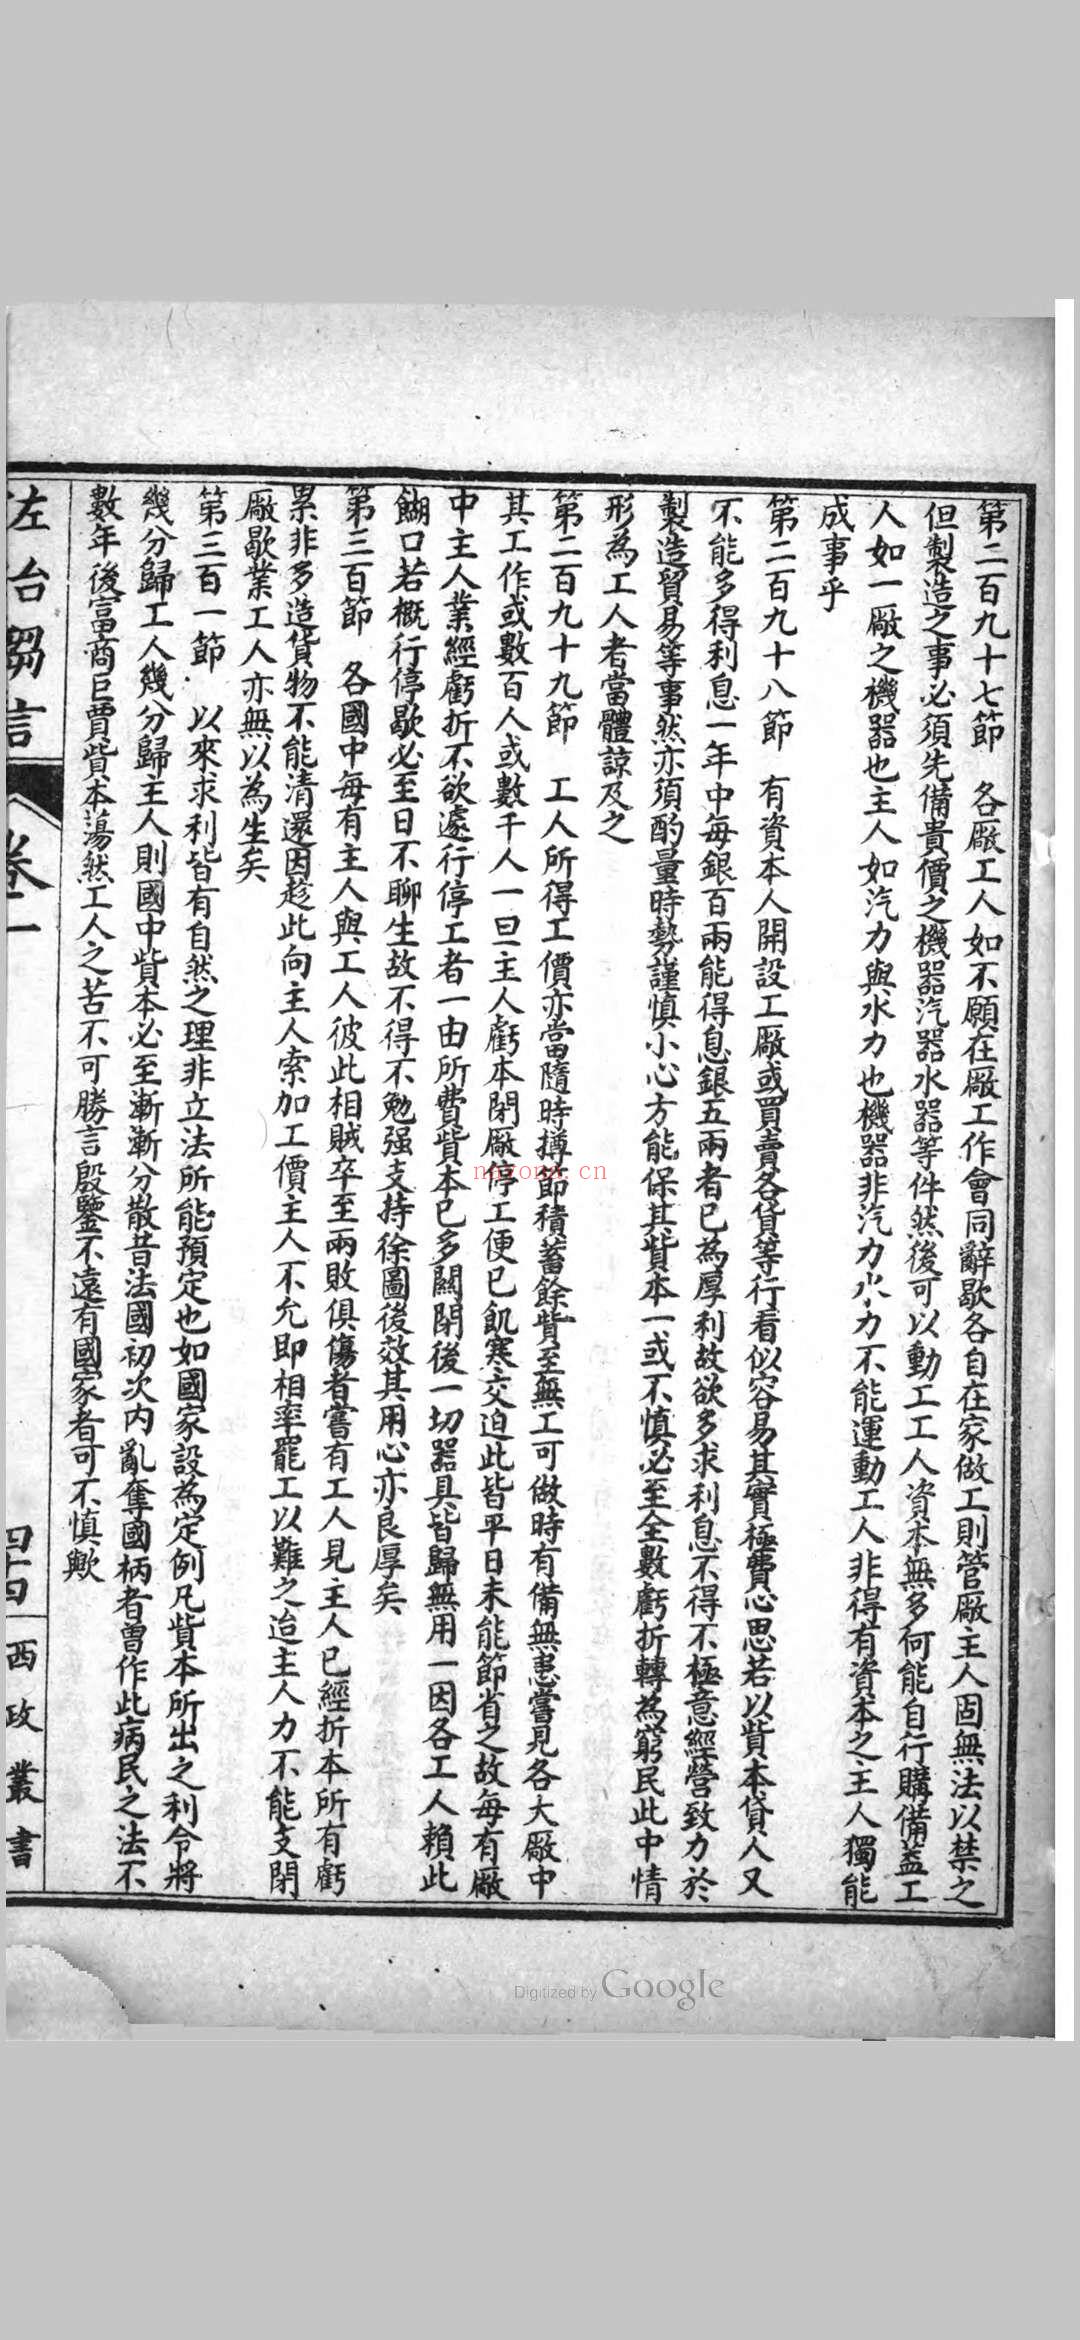 第二百九十七節　各廠工人如不願在廠工作會同辭歇各自在家做工則管廠主人固無法以禁之
但製造之事必須先備貴價之機器汽器水器等件然後可以動工工人資本無多何能自行購備蓋工
人如一廠之機器也主人如汽力與水力也機器非汽力水力不能運動工人非得有資本之主人獨能
成事乎
第二百九十八節　有資本人開設工廠或買賣各貨等行看似容易其實極費心思若以貲本貸人又
不能多得利息一年中每銀百兩能得息銀五兩者已為厚利故欲多求利息不得不極意經營致力於
製造貿易等事然亦須酌量時勢謹慎小心方能保其貲本一或不慎必至全數虧折轉為窮民此中情
形為工人者當體諒及之
第二百九十九節　工人所得工價亦當隨時撙節積蓄餘貲至無工可做時有備無患嘗見各大廠中
其工作或數百人或數千人一旦主人虧本閉廠停工便已飢寒交迫此皆平日未能節省之故每有廠
中主人業經虧折不欲遽行停工者一由所費貲本已多關閉後一切器具皆歸無用一因各工人賴此
餬口若概行停歇必至日不聊生故不得不勉强支持徐圖後效其用心亦良厚矣
第三百節　各國中每有主人與工人彼此相賊卒至兩敗俱傷者嘗有工人見主人已經折本所有虧
累非多造貨物不能清還因趁此向主人索加工價主人不允即相率罷工以難之迨主人力不能支閉
廠歇業工人亦無以為生矣
第三百一節　以來求利皆有自然之理非立法所能預定也如國家設為定例凡貲本所出之利令將
幾分歸工人幾分歸主人則國中貲本必至漸漸分散昔法國初次內亂奪國柄者曾作此病民之法不
數年後富商巨賈貲本蕩然工人之苦不可勝言殷鑒不遠有國家者可不慎歟
佐治芻言　卷二　四十四　西政叢書
nayona.cn
Digitized by Google